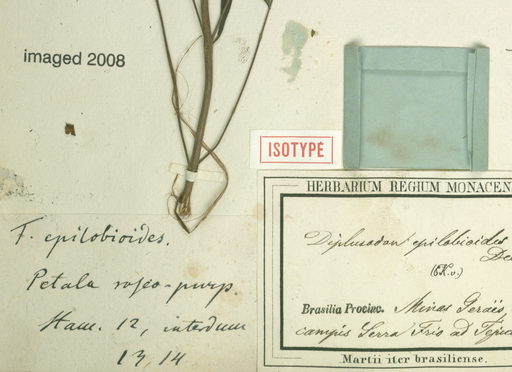 imaged 2008
ISOTYPE
F. epilobioides.
Petala roseo-purp.
Stam. 12, interdum
13, 14
HERBARIUM REGIUM MONACEN
Diplusodon epilobioides
De
Brasilia Provinc. Minas Geraës,
campis Serra Frio ad Tejuc
Martii iter brasiliense.